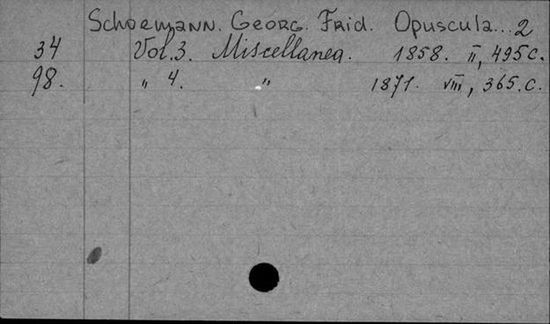 Schoemann. Georg. Frid. Opuscula...2
34 Vol.3. Miscellanea. 1858. II, 495 c.
98. " 4. " 1871. VIII, 365. c.